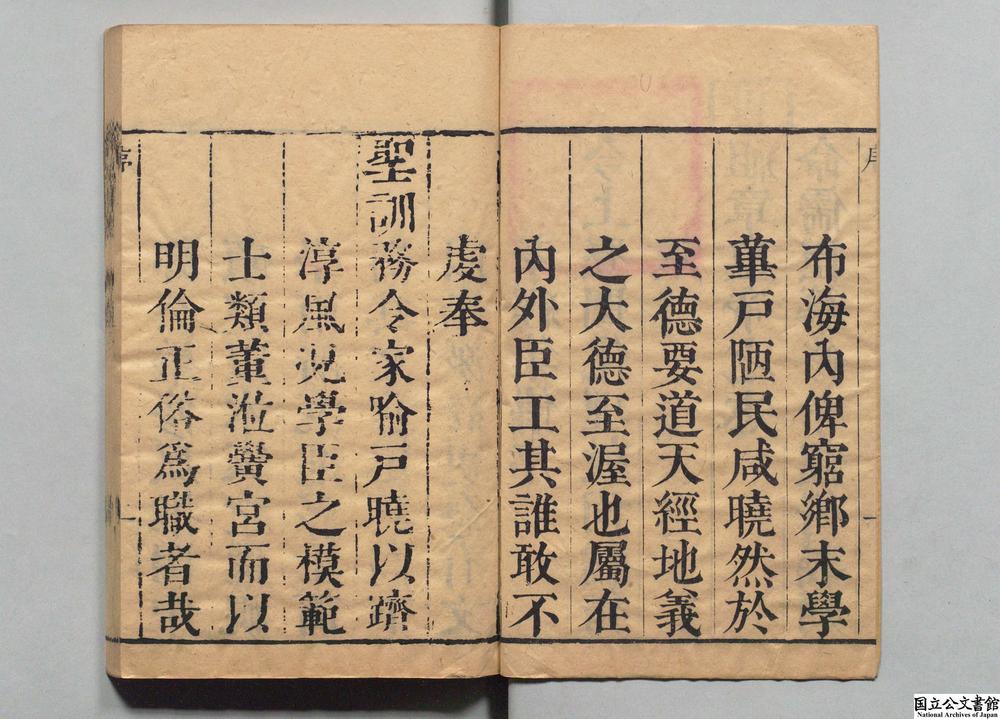 序
布海內俾窮鄉末學
蓽戶陋民咸曉然於
至德要道天經地義
之大德至渥也屬在
內外臣工其誰敢不
虔奉
聖訓務令家喻戸曉以躋
淳風況學臣之模範
士類董涖黌宮而以
明倫正俗爲職者哉
序
国立公文書館
National Archives of Japan